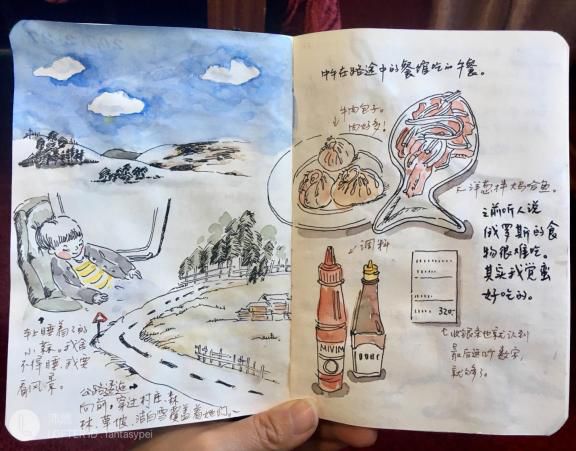 车上睡着了的
小森。我舍
不得睡，我要
看风景。
公路透迤
向前，穿过村庄、森
林、草坡，洁白雪覆盖着她们～
LOFTER ID：fantasypei
中午在路途中的餐馆吃的午餐。
牛肉包子。
肉好多！
洋葱拌鸡哈鱼。
之前听人说
俄罗斯的食
物很难吃。
其实我觉蛮
好吃的。
调料
MIVIM
320.-
最后这个数字，
就够了。